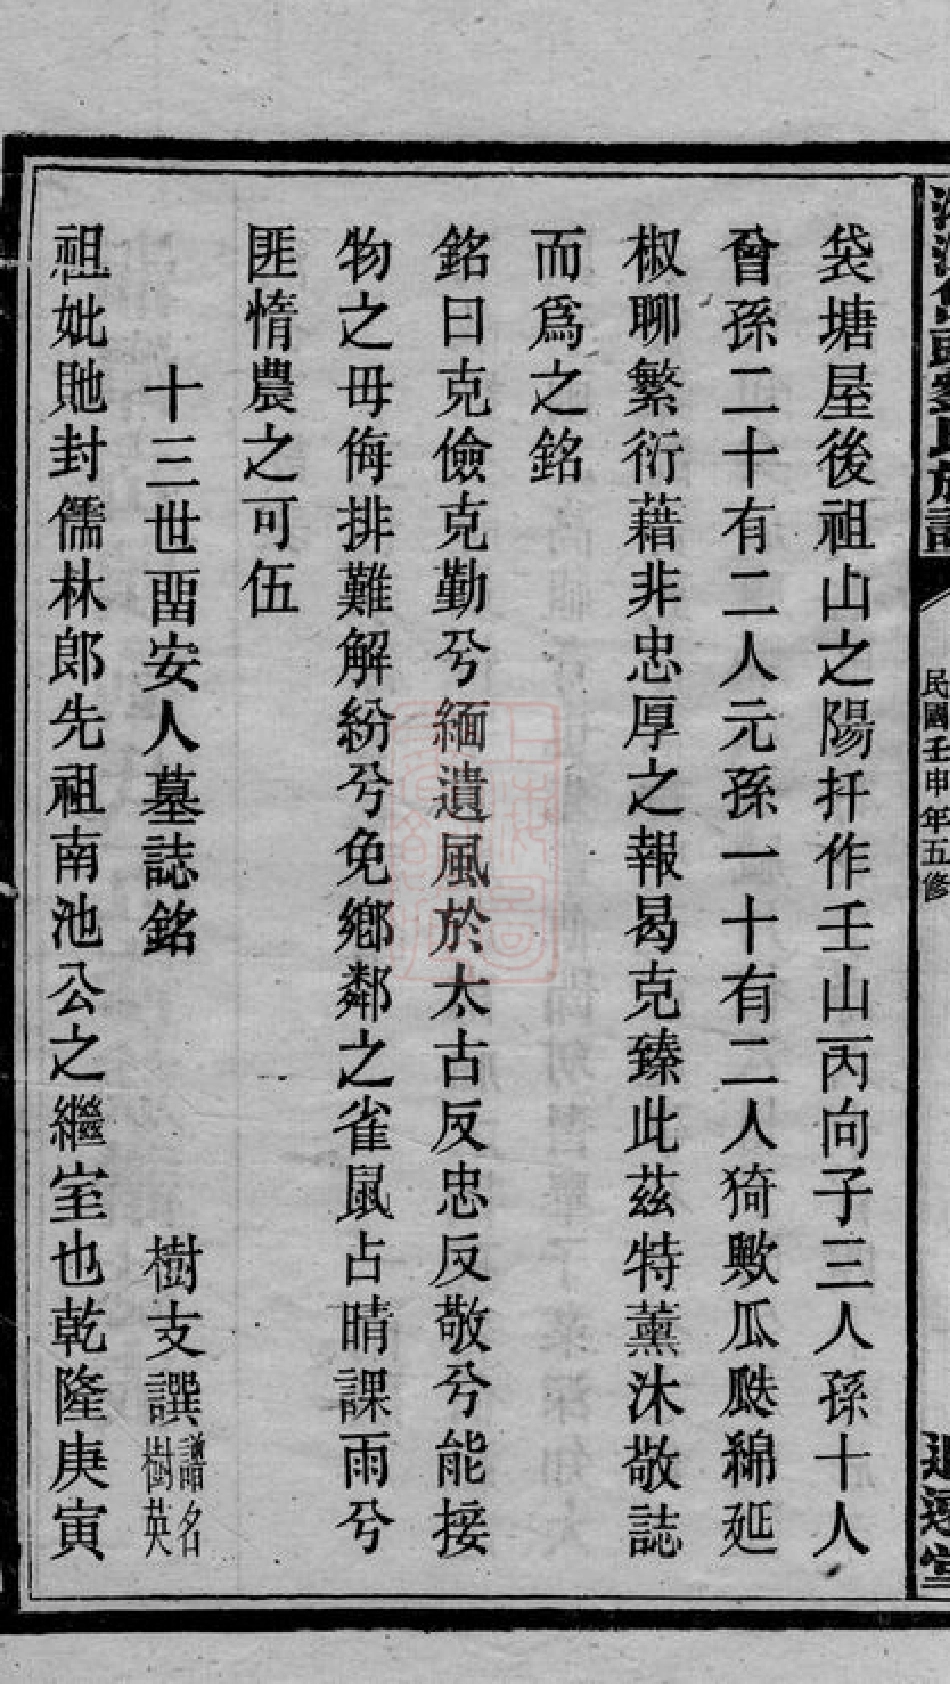 民國壬申年五修
袋塘屋後祖山之陽扦作壬山丙向子三人孫十人
曾孫二十有二人元孫一十有二人猗歟瓜瓞綿延
椒聊繁衍藉非忠厚之報曷克臻此茲特薰沐敬誌
而爲之銘
銘曰克儉克勤兮緬遺風於太古反忠反敬兮能接
物之毋侮排難解紛兮免鄉鄰之雀鼠占晴課雨兮
匪惰農之可伍
十三世畱安人墓誌銘 樹支譔 譜名樹英
祖妣貤封儒林郎先祖南池公之繼室也乾隆庚寅